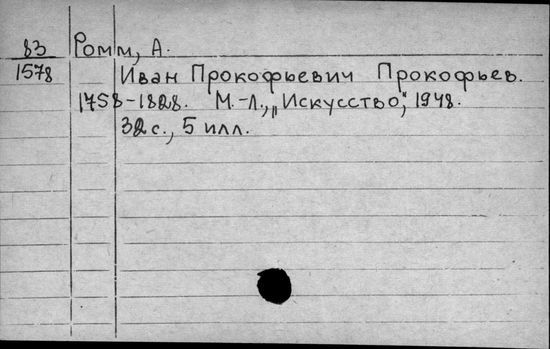 83 Ромм, А.
1578 Иван Прокофьевич Прокофьев.
1758-1828. М.-Л., „Искусство", 1948.
32 с., 5 илл.